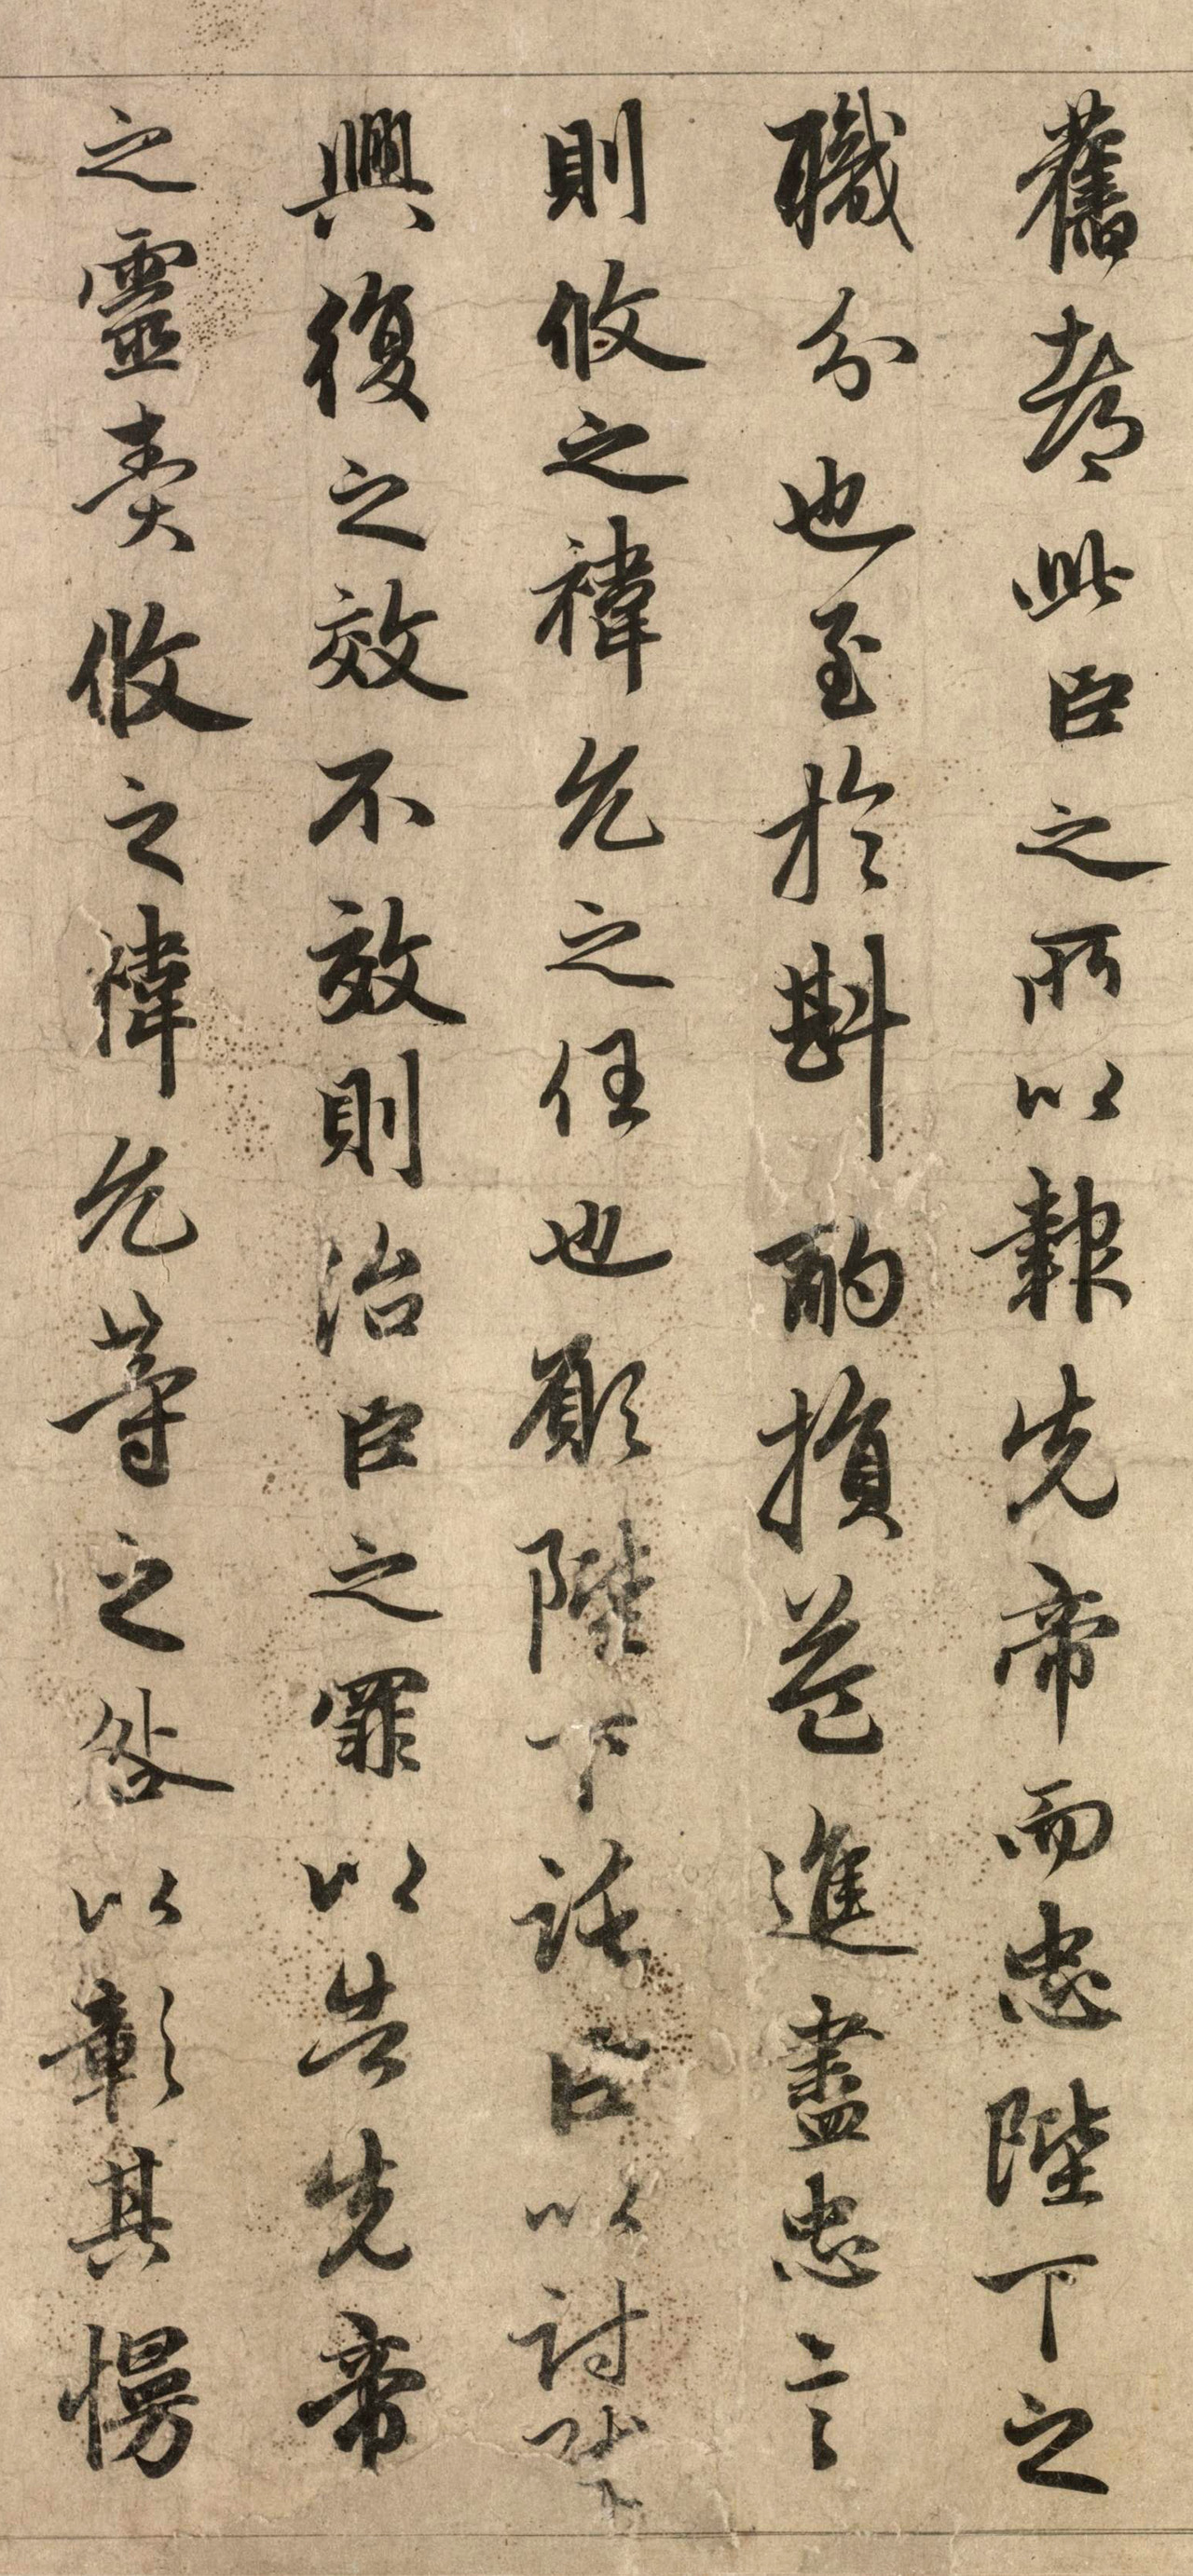 舊都此臣之所以報先帝而忠陛下之
職分也至於斟酌損益進盡忠言
則攸之禕允之任也願陛下託臣以討賊
興復之效不效則治臣之罪以告先帝
之靈責攸之禕允等之咎以彰其慢